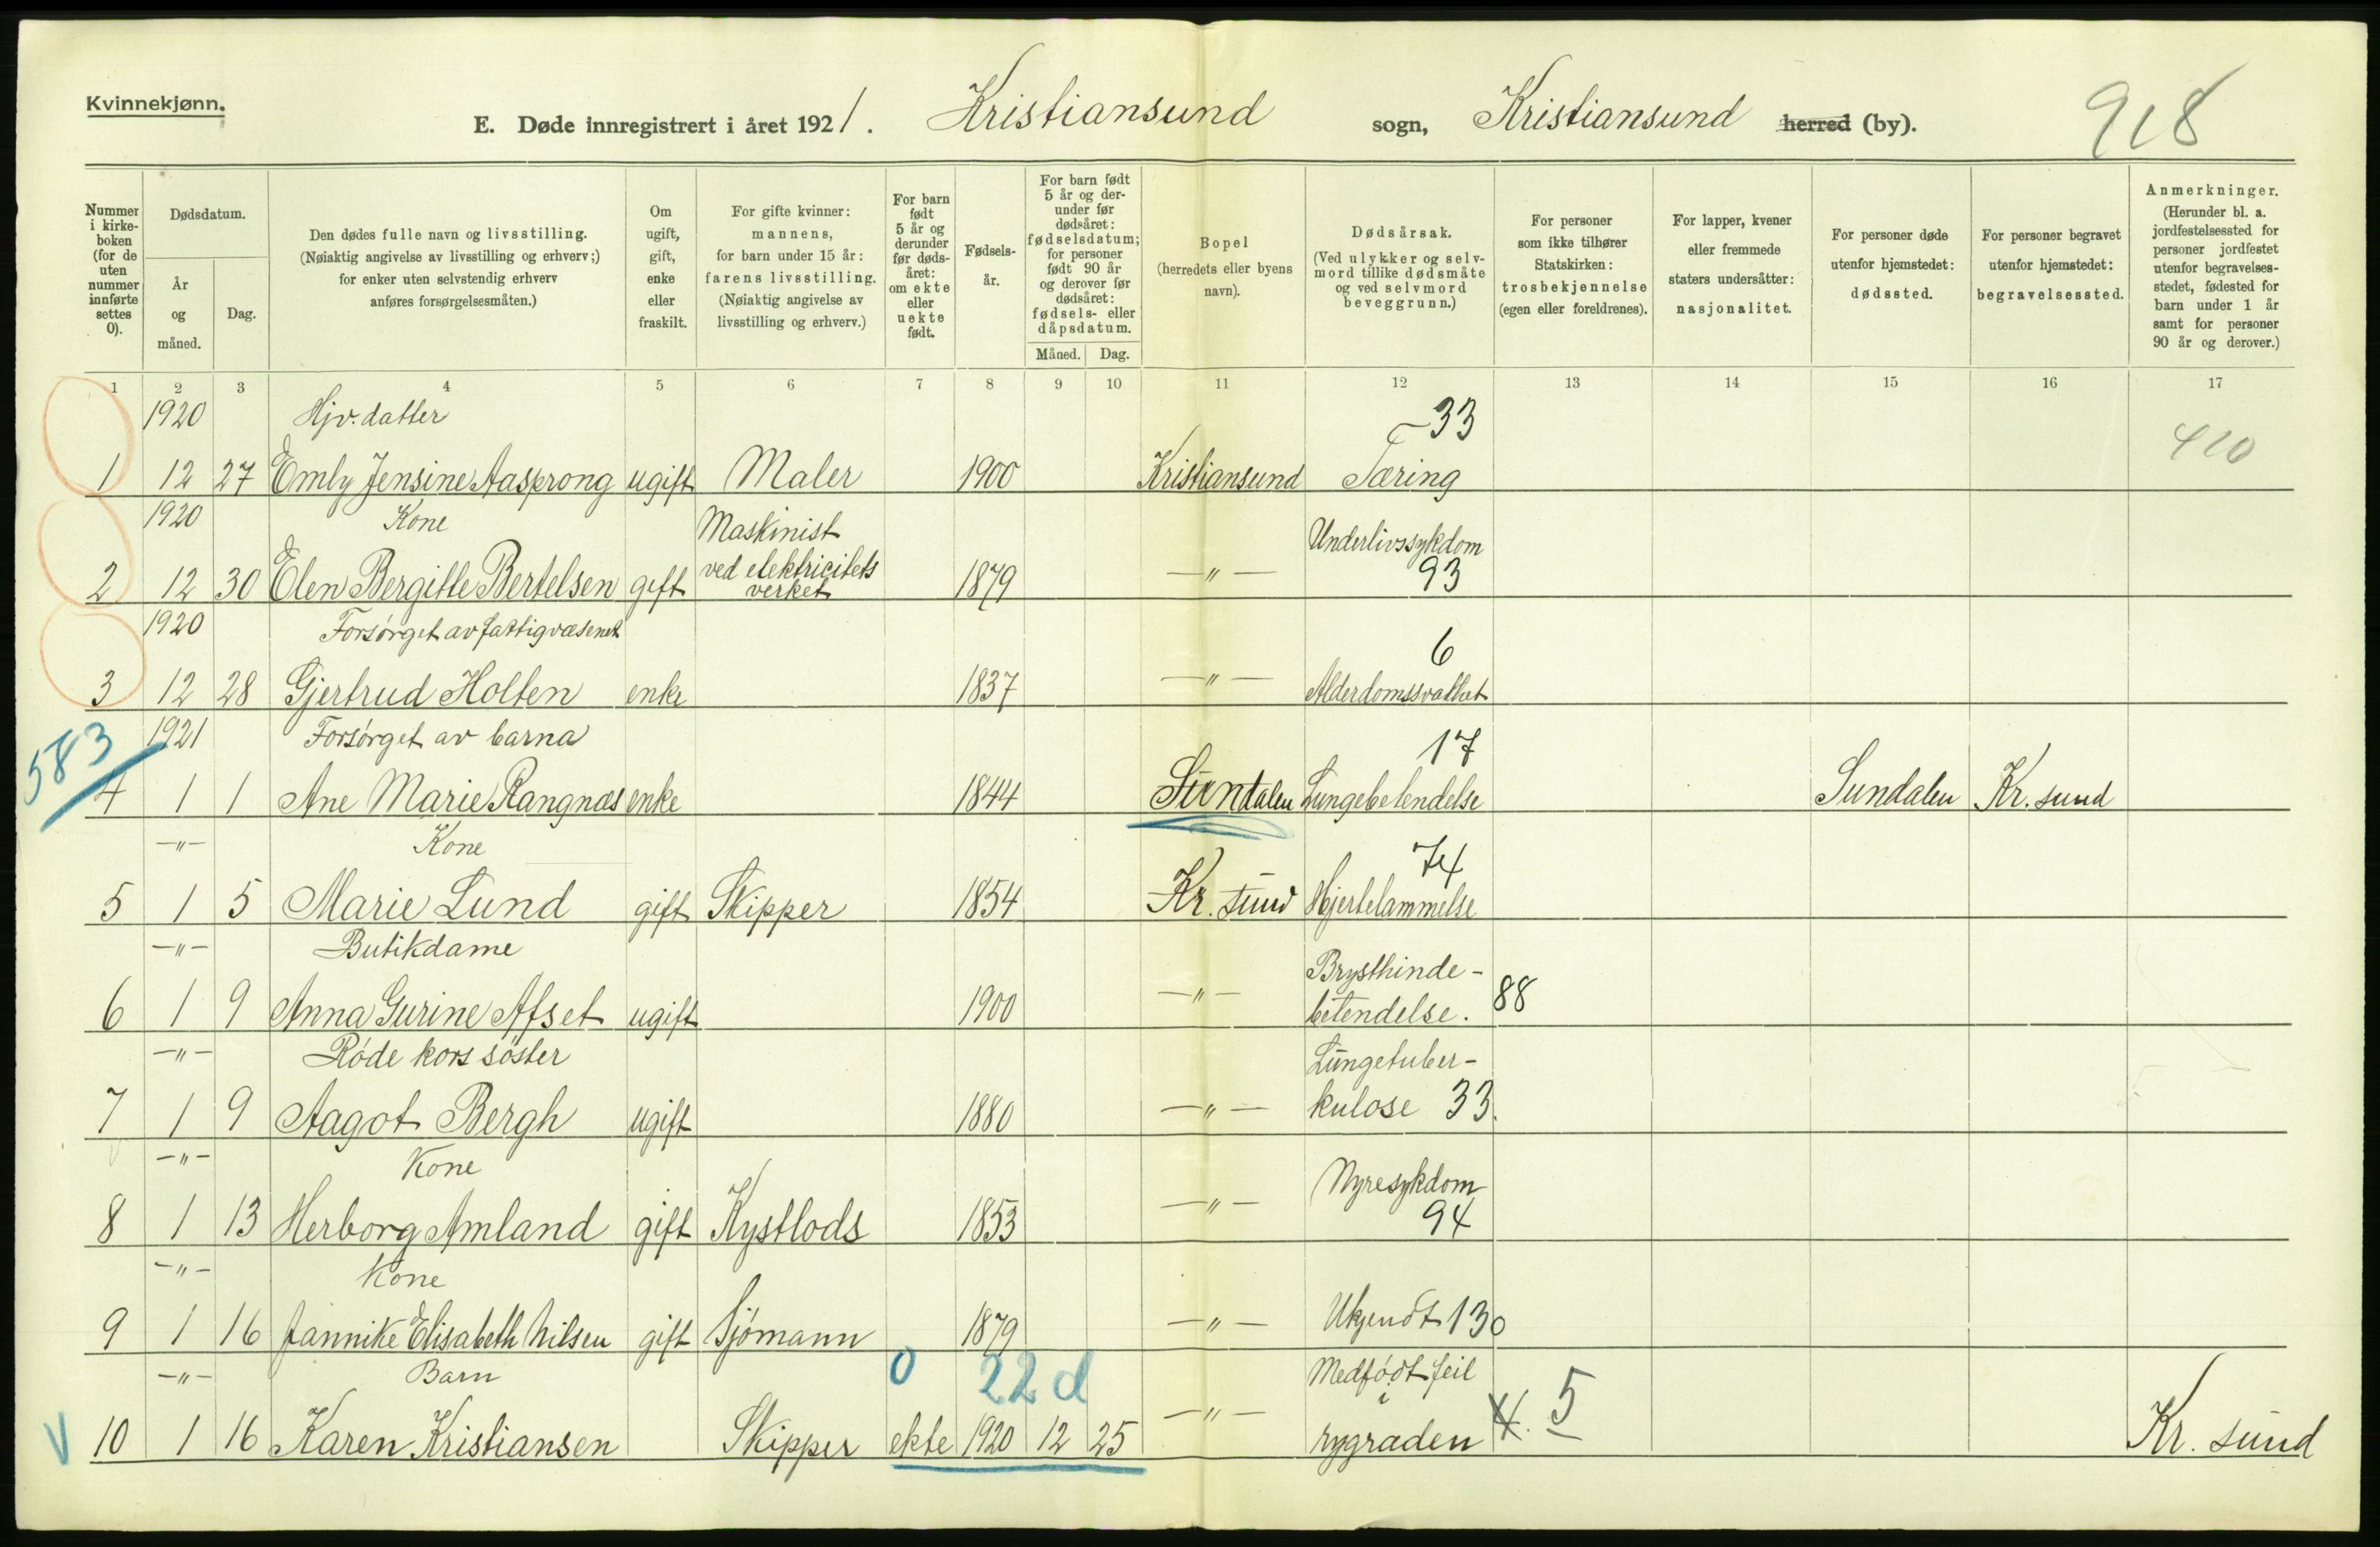 Kvinnekjønn.
E. Døde innregistrert i året 1921. Kristiansund sogn, Kristiansund herred (by).
918
Nummer i kirke- boken (for de uten nummer innførte settes 0).
Dødsdatum.
År og måned.
Dag.
Den dødes fulle navn og livsstilling.
(Nøiaktig angivelse av livsstilling og erhverv;)
for enker uten selvstendig erhverv
anføres forsørgelsesmåten.)
Om ugift, gift, enke eller fraskilt.
For gifte kvinner:
mannens,
for barn under 15 år:
farens livsstilling.
(Nøiaktig angivelse av
livsstilling og erhverv.)
For barn født 5 år og derunder før døds- året: om ekte eller uekte født.
Fødsels- år.
For barn født 5 år og der- under før dødsåret: fødselsdatum; for personer født 90 år og derover før dødsåret: fødsels- eller dåpsdatum.
Måned. Dag.
Bopel
(herredets eller byens
navn).
Dødsårsak.
(Ved ulykker og selv-
mord tillike dødsmåte
og ved selvmord
beveggrunn.)
For personer
som ikke tilhører
Statskirken:
trosbekjennelse
(egen eller foreldrenes).
For lapper, kvener
eller fremmede
staters undersåtter:
nasjonalitet.
For personer døde
utenfor hjemstedet:
dødssted.
For personer begravet
utenfor hjemstedet:
begravelsessted.
Anmerkninger.
(Herunder bl. a.
jordfestelsessted for
personer jordfestet
utenfor begravelses-
stedet, fødested for
barn under 1 år
samt for personer
90 år og derover.)
1 2 3 4 5 6 7 8 9 10 11 12 13 14 15 16 17
1920 Hjv. datter 33
1 12 27 Emly Jensine Aasprong ugift Maler 1900 Kristiansund Tæring 410
1920 Kone Maskinist Underlivssykdom
2 12 30 Elen Bergitte Bertelsen gift ved elektricitets verket 1879 —"— 93
1920 Forsørget av fattigvæsenet 6
3 12 28 Gjertrud Holten enke 1837 —"— Alderdomssvakhet
583
1921 Forsørget av barna 17
4 1 1 Ane Marie Rangnæs enke 1844 Sundalen Lungebetendelse Sundalen Kr. sund
—"— Kone 74
5 1 5 Marie Lund gift Skipper 1854 Kr. sund Hjertelammelse
—"— Butikdame Brysthinde-
6 1 9 Anna Gurine Afset ugift 1900 —"— betendelse. 88
—"— Røde kors søster Lungetuber-
7 1 9 Aagot Bergh ugift 1880 —"— kulose 33.
—"— Kone Nyresykdom
8 1 13 Herborg Amland gift Kystlods 1853 —"— 94
—"— Kone
9 1 16 Jannike Elisabeth Nilsen gift Sjømann 1879 —"— Ukjendt 130
—"— Barn 0 22 d Medfødt feil i
V 10 1 16 Karen Kristiansen Skipper ekte 1920 12 25 —"— rygraden 4. 5 Kr. sund